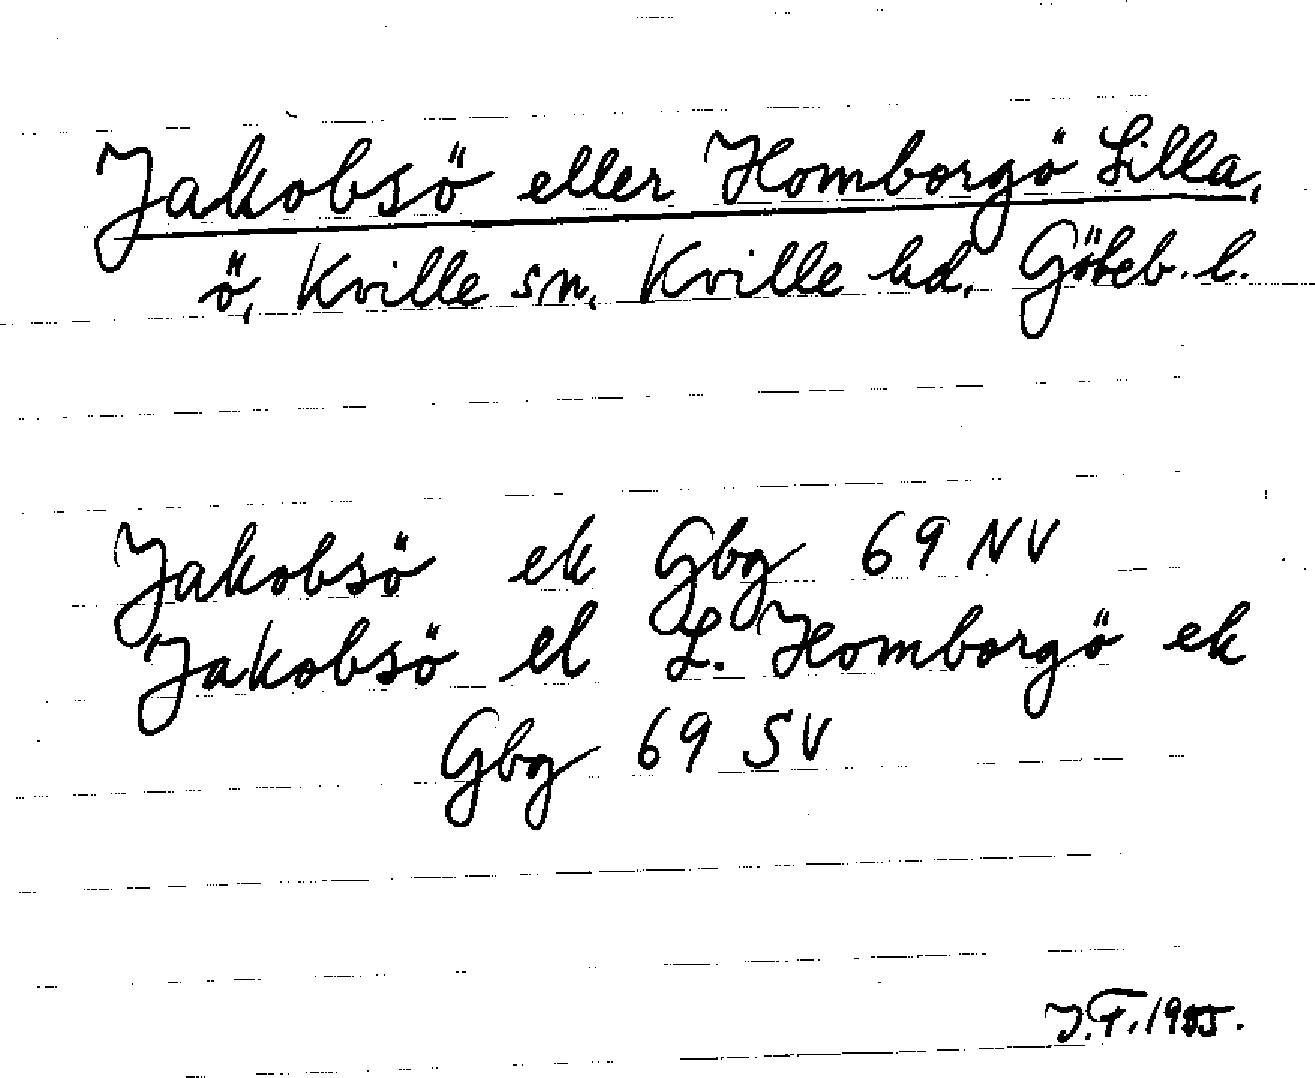 Jakobsö eller Homborgö Lilla,
ö, Kville sn. Kville hd. Göteb. l.
Jakobsö ek Gbg 69 NV
Jakobsö el L. Homborgö ek
Gbg 69 SV
J.F.